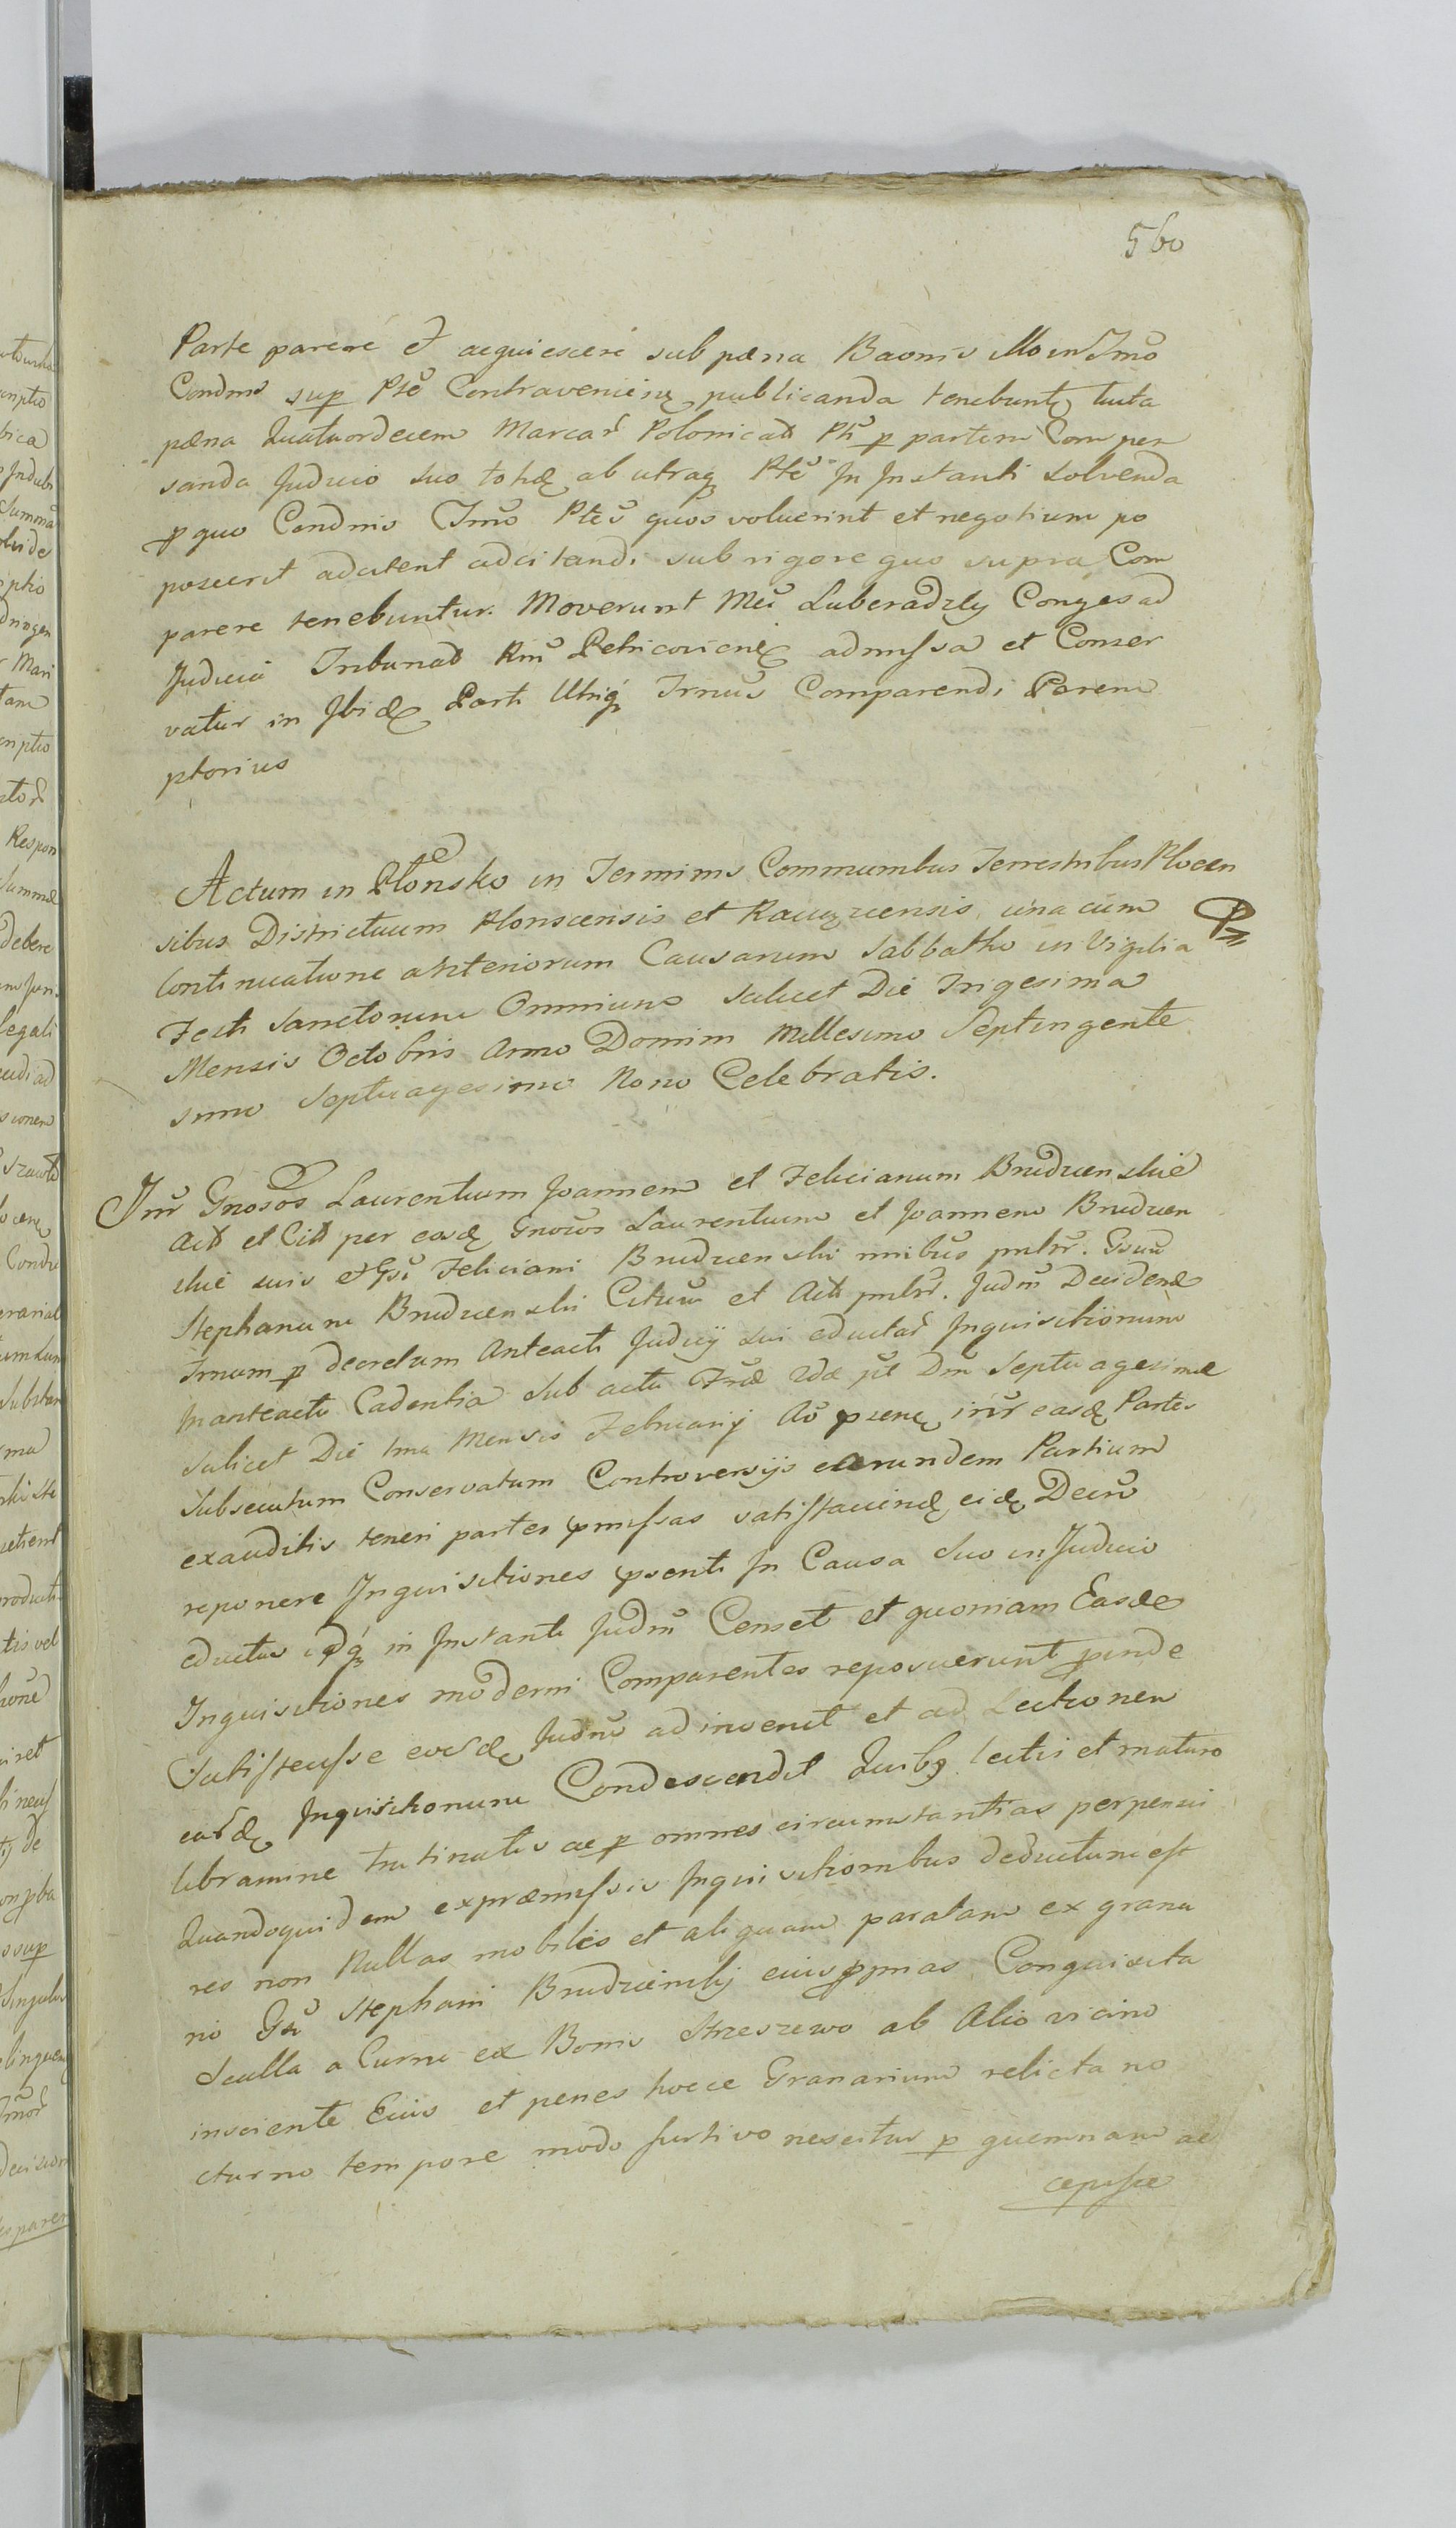 560
Parte parere et acquiescere sub pæna Baonis illo in Trmo
Condnis sup Pte Contraveniens publicanda tenebunt luita
pæna Quatuordecem Marcar Polonicað Pti p partem Compen
sanda Judicio suo totid ab utraq Pte In Instanti solvenda
p quo Condnis Trmo Ptes quos voluerint et negotium po
poscerit adcitent adcitandi sub rigore quo supra Com
parere tenebuntur. Moverunt Mci Luberadzky Conges ad
Judicia Tribunað Rni Petricovien admissa et Conser
vatur in Ibid Parti Utriq Trnus Comparendi Perem
ptorius
Actum in Płońsko in Terminis Communibus Terrestribus Plocen
sibus Districtuum Plonscensis et Raciązcensis una cum
Continuatione anteriorum Causarum Sabbatho in Vigilia
Festi Sanctorum Omnium scilicet Die Trigesima
Mensis Octobris Anno Domini Millesimo Septingente
simo Septuagesimo Nono Celebratis.
Intr Gnosos Laurentium Joannem et Felicianum Brudzenskie
Act et Cit per eosd Gnosos Laurentium et Joannem Brudzen
skie suis et Gsi Feliciani Brudzenskii nnibus pnltr. Gsum
Stephanum Brudzenski Citum et Act pnltr. Judm Decidend
Trnum p decretum Anteacti Judicij sui eductar Inquisitionum
In anteactu Cadentia sub actu Fræ 2dæ pt Dni Septuagesimæ
scilicet Die 1ma Mensis Februarij Ao præn intr easd Partes
Subsecutum Conservatum Controversijs earundem Partium
exauditis teneri partes præmissas satisfaciend eid Decrto
reponere Inquisitiones psenti In Causa suo in Judicio
eductas idq in Instanti Judm Censet et quoniam Easde
Inquisitiones moderni Comparentes reposuerunt proinde
Satisfecisse eosd Judm adinvenit et ad Lectionem
eard Inquisitionum Condescendit Quibq lectis et maturo
libramine trutinatis ac p omnes circumstantias perpensis
Quandoquidem ex præmissis Inquisitionibus deductum est
res non Nullas mobiles et aliquam paratam ex grana
rio Gsi Stephani Brudzinskij eius ppnas Conquisita
Sculla a Curru ex Bonis Strzeszewo ab Alio vicino
insciente Eius et penes hocce Granarium relicta no
cturno tempore modo furtivo nescitur p quemnam ac
cepisse